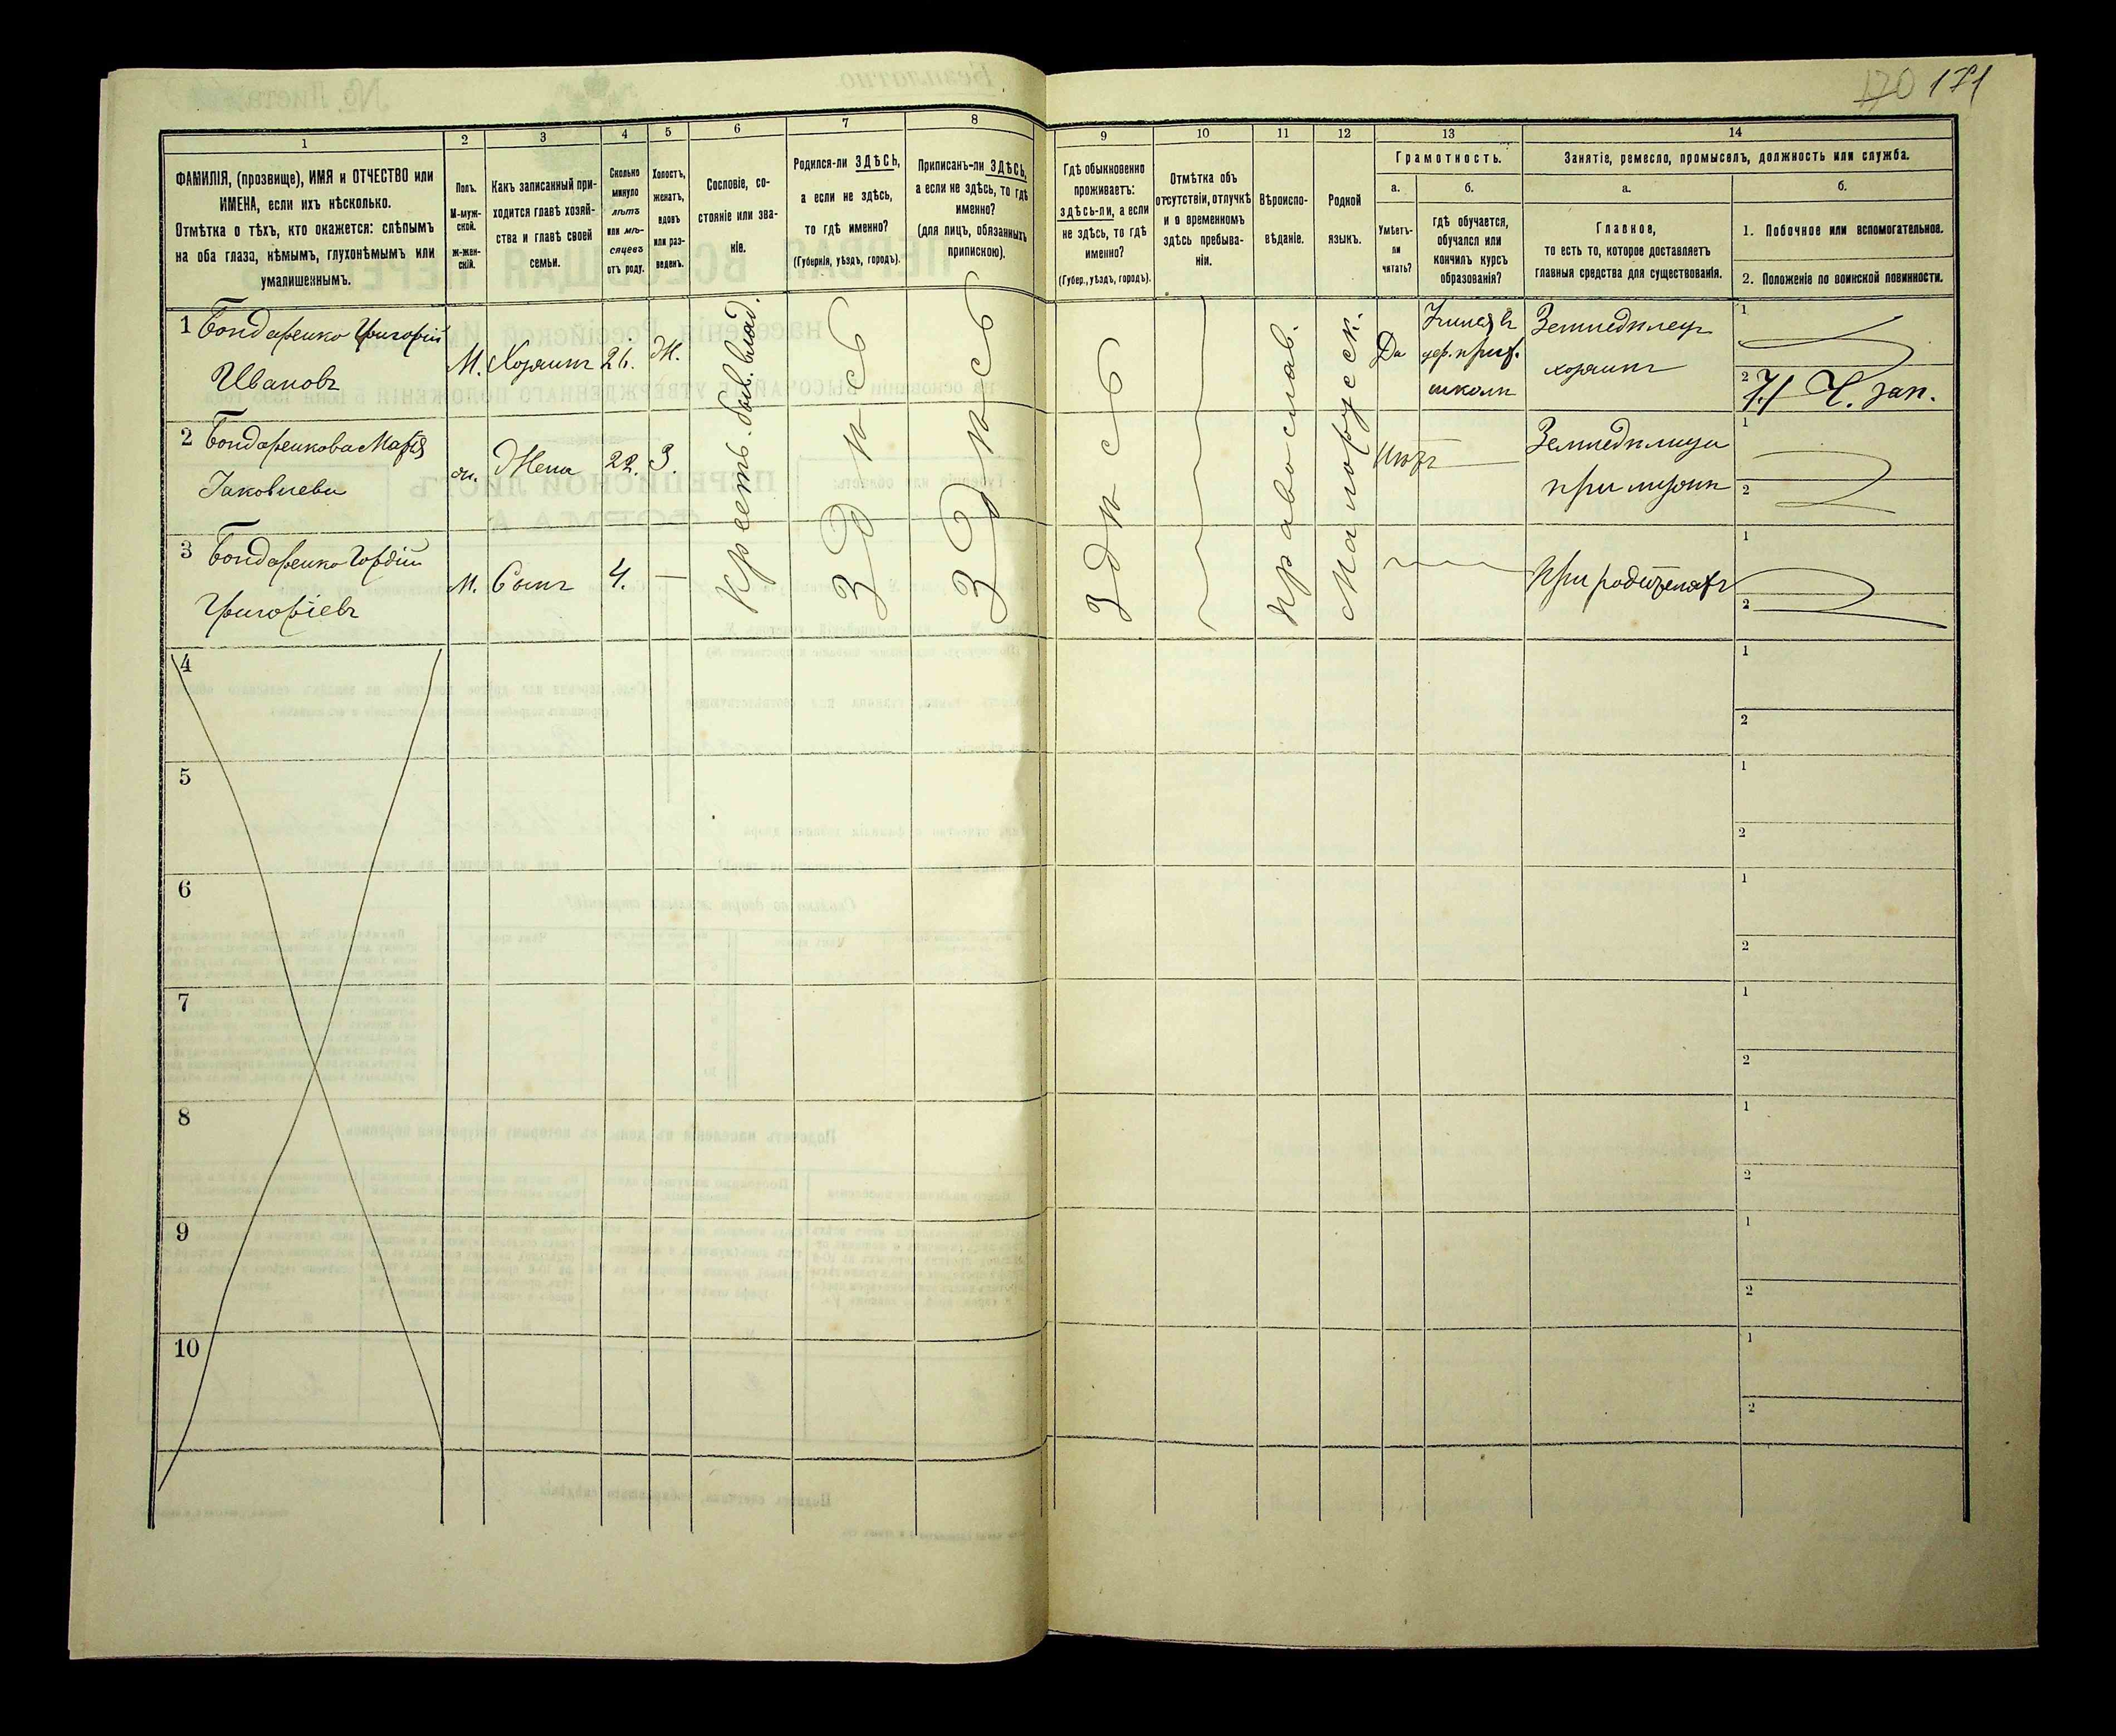 170 171
1 2 3 4 5 6 7 8 9 10 11 12 13 14
ФАМИЛІЯ, (прозвище), ИМЯ и ОТЧЕСТВО или
ИМЕНА, если ихъ нѣсколько.
Отмѣтка о тѣхъ, кто окажется: слѣпымъ
на оба глаза, нѣмымъ, глухонѣмымъ или
умалишеннымъ.
Полъ.
М-муж-
ской.
ж-жен-
скій.
Какъ записанный при-
ходится главѣ хозяй-
ства и главѣ своей
семьи.
Сколько
минуло
лѣтъ
или мѣ-
сяцевъ
отъ роду.
Холостъ,
женатъ,
вдовъ
или раз-
веденъ.
Сословіе, со-
стояніе или зва-
ніе.
Родился-ли ЗДѢСЬ,
а если не здѣсь,
то гдѣ именно?
(Губернія, уѣздъ, городъ).
Приписанъ-ли ЗДѢСЬ,
а если не здѣсь, то гдѣ
именно?
(для лицъ, обязанныхъ
припискою).
Гдѣ обыкновенно
проживаетъ:
здѣсь-ли, а если
не здѣсь, то гдѣ
именно?
(Губер., уѣздъ, городъ).
Отмѣтка объ
отсутствіи, отлучкѣ
и о временномъ
здѣсь пребыва-
ніи.
Вѣроиспо-
вѣданіе.
Родной
языкъ.
Грамотность.
а. б.
Умѣетъ-
ли
читать?
Гдѣ обучается,
обучался или
кончилъ курсъ
образованія?
Занятіе, ремесло, промыселъ, должность или служба.
а. б.
Главное,
то есть то, которое доставляетъ
главныя средства для существованія.
1. Побочное или вспомогательное.
2. Положеніе по воинской повинности.
1 Бондаренко Григорій
Ивановъ
М. Хозяинъ 26. Ж.
Крест. бывш. влад.
Здѣсь
Здѣсь
Здѣсь
Православ.
Малорусск.
Да
школи
Земледѣлец
хозяинъ
1
2 зап.
2 Бондаренкова Марія
Іаковлева
ж. Жена 22. З.
Нѣтъ
Земледѣлица
при мужѣ
1
2
3 Бондаренко Гордій
Григоріевъ
М. Сынъ 4. —
При родителяхъ
1
2
4 1
2
5 1
2
6 1
2
7 1
2
8 1
2
9 1
2
10 1
2